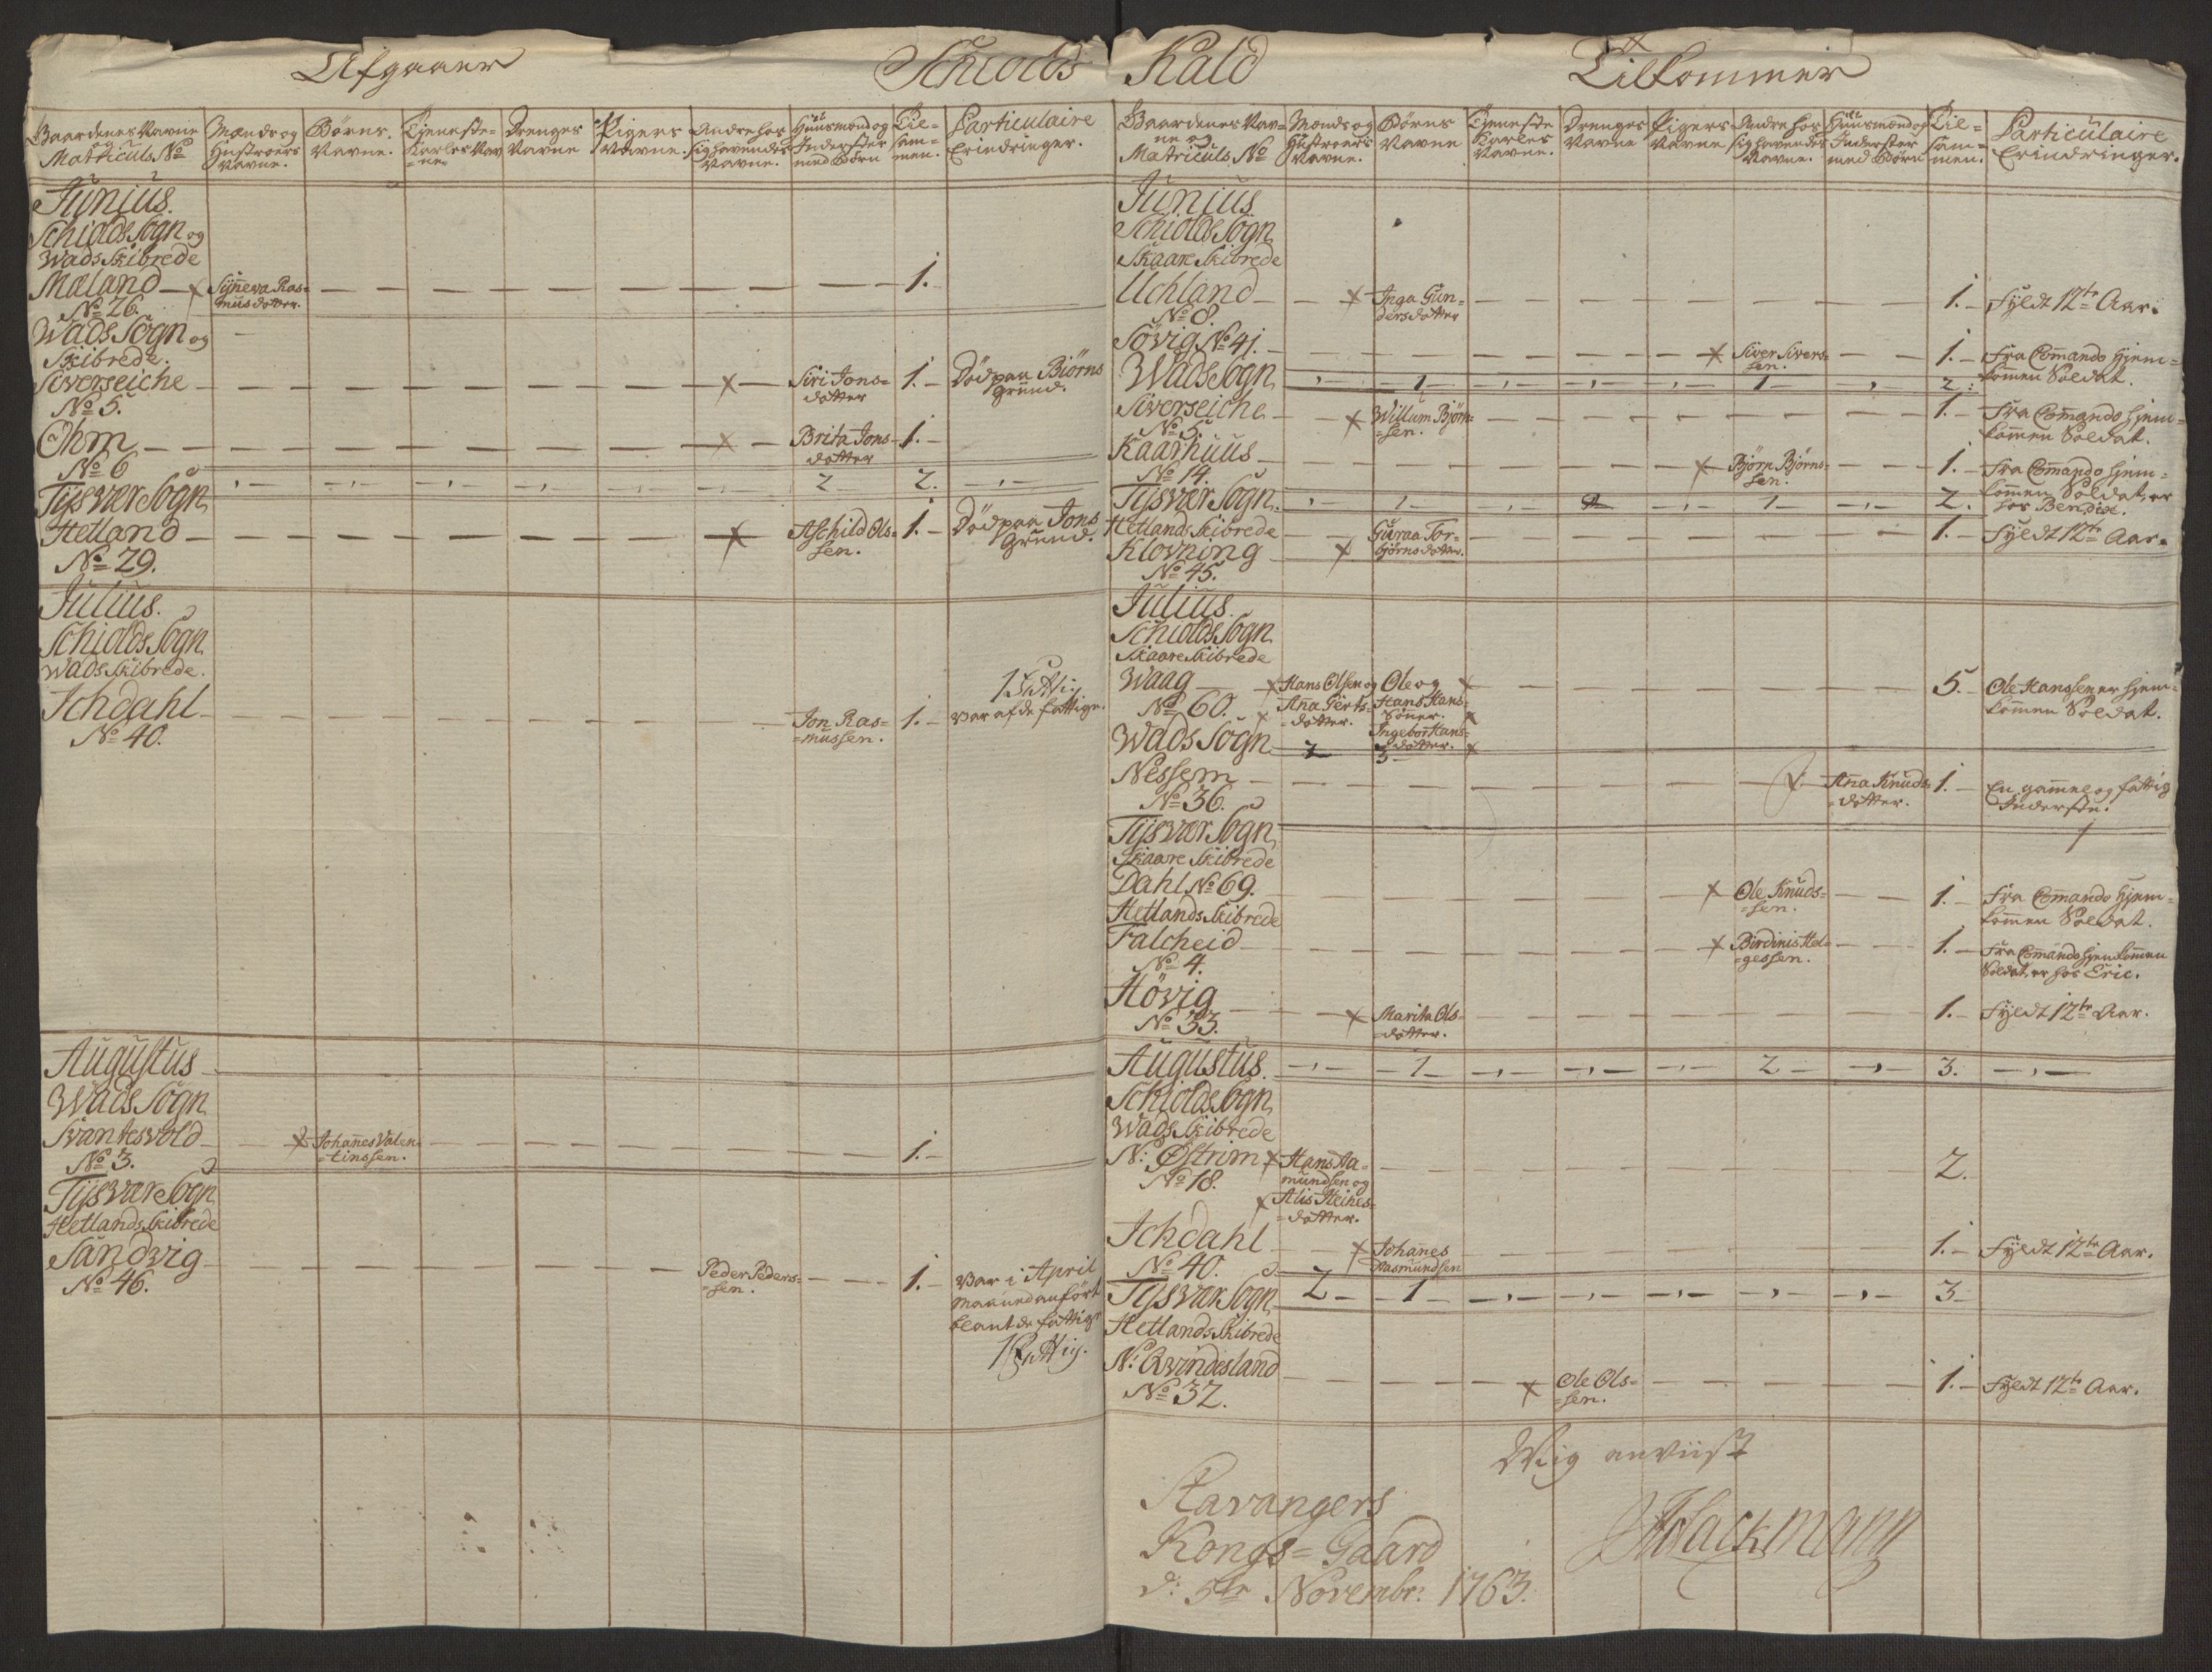 Afgaaer
Schiolds Kald
Tilkommer
Gaardenes Navne og Matriculs No
Mænds og Hustroers Navne.
Børns Navne.
Tieneste-Karles Navne
Drenges Navne
Pigers Navne.
Andre hos sig havendes Navne.
Huusmænd og Inderster med Børn
Tilsammen.
Particulaire Erindringer.
Junius.
Schiolds Sogn og
Wads Skibrede
Maland
No 26.
Synneva Ras=
musdotter.
1.
Wads Sogn og
Skibrede.
Siverseiche
No 5.
Siri Jons=
dotter
1.
Død paa Biørns
Grund.
Ohm
No 6
Brita Jons=
dotter
1.
2
2.
Tysvær Sogn
Hetland
No 29.
Aschild Ols=
sen.
1.
Død paa Jons
Grund.
Julius.
Schiolds Sogn
Wads Skibrede.
Ichdahl
No 40.
Jon Ras=
=mussen.
1.
1 Fattig
Var af de fattige.
Augustus
Wads Sogn
Svantesvold
No 3.
Johannes Valen=
=tinssen.
1.
Tysvær Sogn
Hetlands Skibrede
Sandvig
No 46.
Peder Peders=
=sen.
1.
Var i April
Maaned anført
blant de fattige
1 Fattig.
Gaardenes Nav=
ne og
Matriculs No
Mænds og
Hustroers
Navne.
Børns
Navne
Tieneste
Karles
Navne.
Drenges
Navne
Pigers
Navne
Andre hos
sig havendes
Navne.
Huusmænd og
Inderster
med Børn
Til=
sam=
men.
Particulaire
Erindringer.
Junius
Schiolds Sogn
Skaare Skibrede
Uchland
No 8.
Inga Gun=
dersdotter
1.
Fyldt 12te Aar.
Søvig No 41.
Siver Sivers=
sen.
1.
Fra Comando hjem=
kommen Soldat.
Wads Sogn
1
1
2.
Siverseiche
No 5.
Willum Bjørn=
=sen.
1.
Fra Comando hjem=
kommen Soldat.
Kaarhuus
No 14.
Bjørn Bjørns=
sen.
1.
Fra Comando hjem=
kommen Soldat, er
hos Bendix.
Tysvær Sogn.
1
1
2.
Hetlands Skibrede
Klovning
No 45.
Guraa Tor=
bjørnsdotter.
1.
Fyldt 12te Aar.
Julius.
Schiolds Sogn
Skaare Skibrede
Waag
No 60.
Hans Olsen og
Anna Gerts=
=dotter.
Ole og
Hans Hans=
Sønner.
Ingebor Hans=
dotter.
5.
Ole Hanssen er hjem=
kommen Soldat.
Wads Sogn
2
3
Nessem
No 36.
Anna Knuds=
=dotter.
1.
En gammel og fattig
Inderste.
Tysvær Sogn
Skaare Skibrede
Dahl No 69.
Ole Knuds=
=sen.
1.
Fra Comando hjem=
kommen Soldat.
Hetlands Skibrede
Falcheid
No 4.
Birdinis Hel=
=gessen.
1.
Fra Comando hjemkommen
Soldat, er hos Eric.
Høvig
No 33.
Marita Ols=
=dotter.
1.
Fyldt 12te Aar.
Augustus.
1
2
3.
Schiolds Sogn
Wads Skibrede
N: Østrim
No 18.
Hans Aa=
mundsen og
Alis Heines=
=dotter.
2.
Ichdahl
No 40.
Johannes
Rasmundsen
1.
Fyldt 12te Aar.
Tysvær Sogn
2
1
3
Hetlands Skibrede
N: Qvindesland
No 32.
Ole Ols=
=sen.
1.
Fyldt 12te Aar.
Mig anviist
Stavangers
Kongs=Gaard
d: 5te Novembr: 1763.